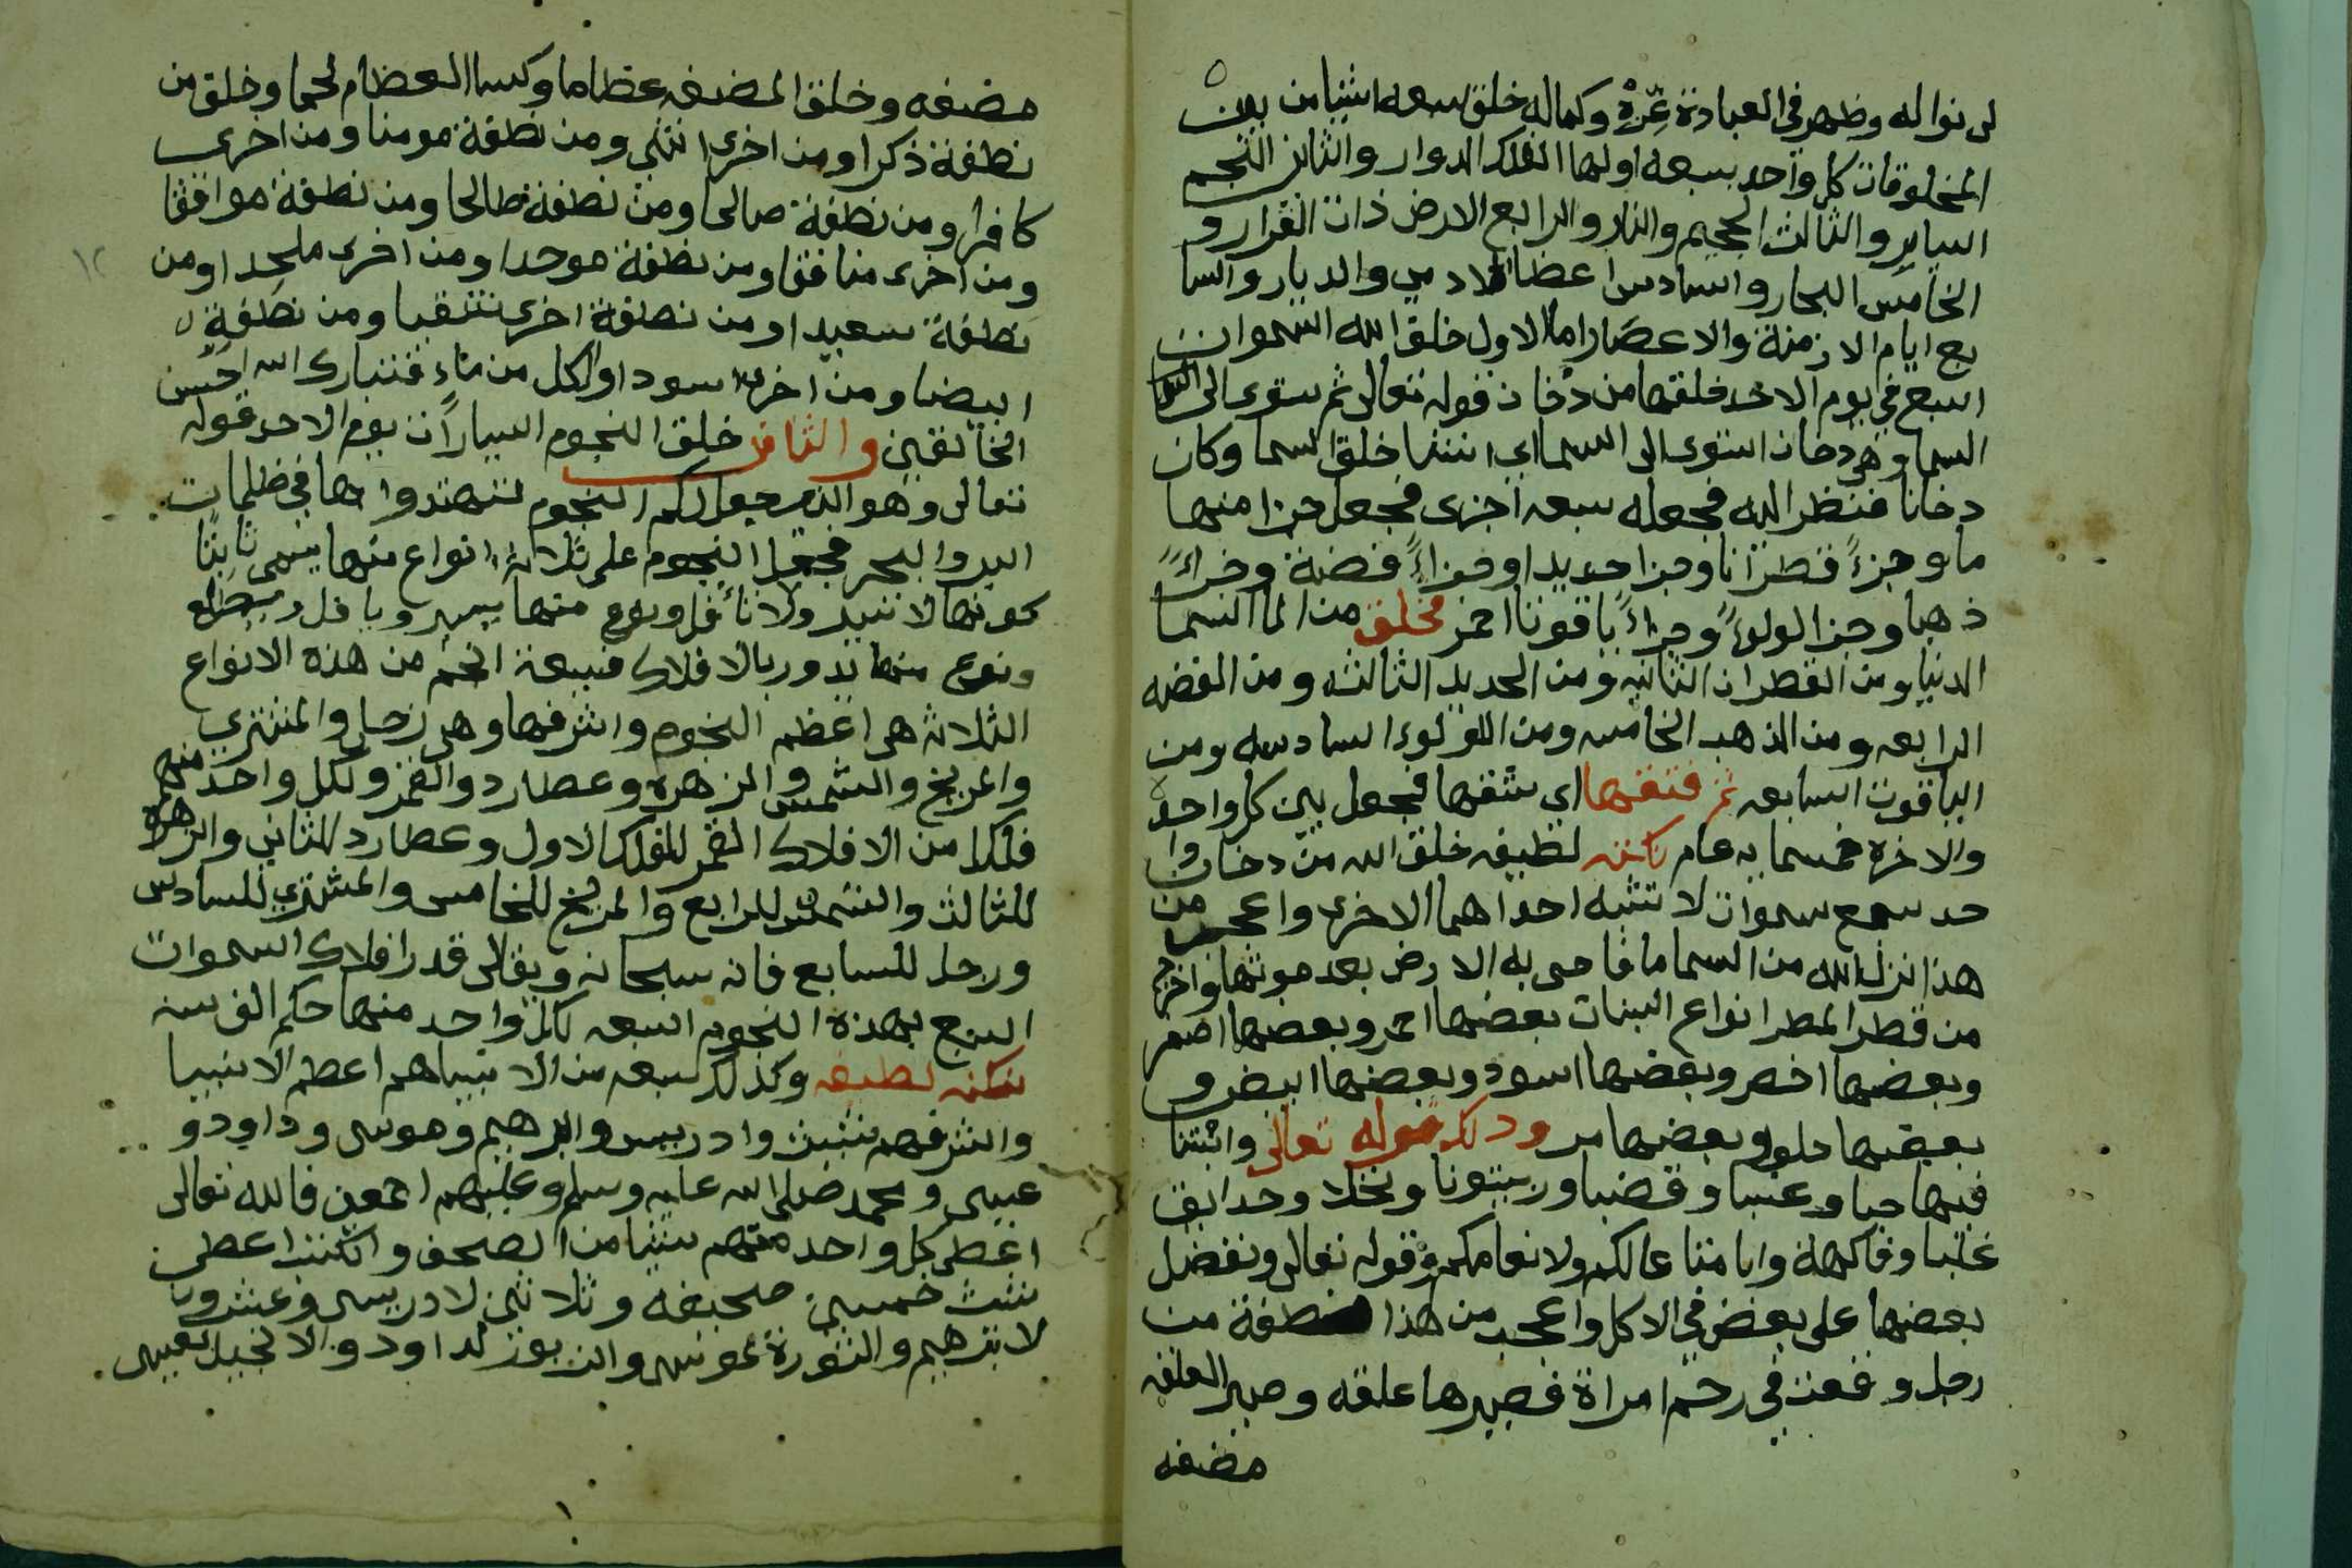 لى نواله وظهر فى العبادة عزه وكماله خلق سبعه اشيا من بين
المخلوقات كل واحد سبعه اولها الفلك الدوار والثانى النجم
الساير والثالث الجحيم والنار والرابع الارض ذات القرار و
الخامس البحار والسادس اعضا الادمي والديار والسا
بع ايام الازمنة والاعصار اما الاول خلق الله السموات
السبع في يوم الاحد خلقها من دخان قوله تعالى ثم ستوى الى
السما وهى دخان استوى الى السما اي خلق السما وكان
دخانا فنظر اليه فجعله سبعه اجزى فجعل جزا منها
ما وجزءً قطرانا وجزا حديدا وجزاءً فضة وجزاءً
ذهبا وجزا لولوءً وجزاءً ياقوتا احمر فخلق من الما السما
الدنيا ومن القطران الثانيه ومن الحديد الثالثه ومن الفضه
الرابعه ومن الذهب الخامسه ومن اللولوء السادسه ومن
الياقوت السابعه ثم فتقها اي شقها فجعل بين كل واحد
والاخره خمسمايه عام نكته لطيفه خلق الله من دخان وا
حد سبع سموات لا تشبه احداهما الاخرى واعجب من
هذا انزل الله من السما ما فاحى به الارض بعد موتها واخرج
من قطر المطر انواع النبات بعضها احمر وبعضها اصفر
وبعضها اخضر وبعضها اسود وبعضها ابيض و
بعضها حلو وبعضها مر وذلك قوله تعالى وانبتنا
فيها حبا وعنبا وقضبا وزيتونا ونخلا وحدايق
غلبا وفاكهة وابا متاعا لكم ولانعامكم وقوله تعالى ونفضل
بعضها على بعض في الاكل واعجب من هذا نطفة من
رجل وقعت في رحم امراة فصيرها علقه وصير العلقه
مضغه
مضغه وخلق المضغه عظاما وكسا العظام لحما وخلق من
نطفة ذكرا ومن اخرى انثى ومن نطفة مومنا ومن اخرى
كافرا ومن نطفة صالحا ومن نطفة طالحا ومن نطفة موافقا
ومن اخرى منافقا ومن نطفة موحدا ومن اخرى ملحدا ومن
نطفة سعيدا ومن نطفة اخرى شقيا ومن نطفة
ابيضا ومن اخرى اسودا والكل من ماء فتبارك الله احسن
الخالقين والثانى خلق النجوم السيارات يوم الاحد قوله
تعالى وهو الذى جعل لكم النجوم لتهتدوا بها فى ظلمات
البر والبحر فجعل النجوم على ثلاثة انواع منها يسمى ثابتا
كونها لا تسير ولا تأفل ونوع منها يسير ويافل
ونوع منها تدور بالافلاك فسبعة انجم من هذه الانواع
الثلاثه هى اعظم النجوم واشرفها وهى زحل والمشتري
والمريخ والشمس والزهره وعطارد والقمر ولكل واحد منهم
فلكا من الافلاك القمر للفلك الاول وعطارد للثاني والزهره
للثالث والشمس للرابع والمريخ للخامس والمشتري للسادس
وزحل للسابع فانه سبحانه وتعالى قدر افلاك السموات
السبع بهذه النجوم السبعه لكل واحد منها حكم الف سنه
نكته لطيفه وكذلك سبعه من الانبياهم اعظم الانبيا
واشرفهم شيث وادريس وابرهيم وموسى وداود و
عيسى ومحمد صلى الله عليه وسلم وعليهم اجمعين فالله تعالى
اعطى كل واحد منهم شيا من الصحف والكتب اعطى
شيث خمسين صحيفه وثلاثين لادريس وعشرون
لابرهيم والتورة لموسى والزبور لداود والانجيل لعيسى